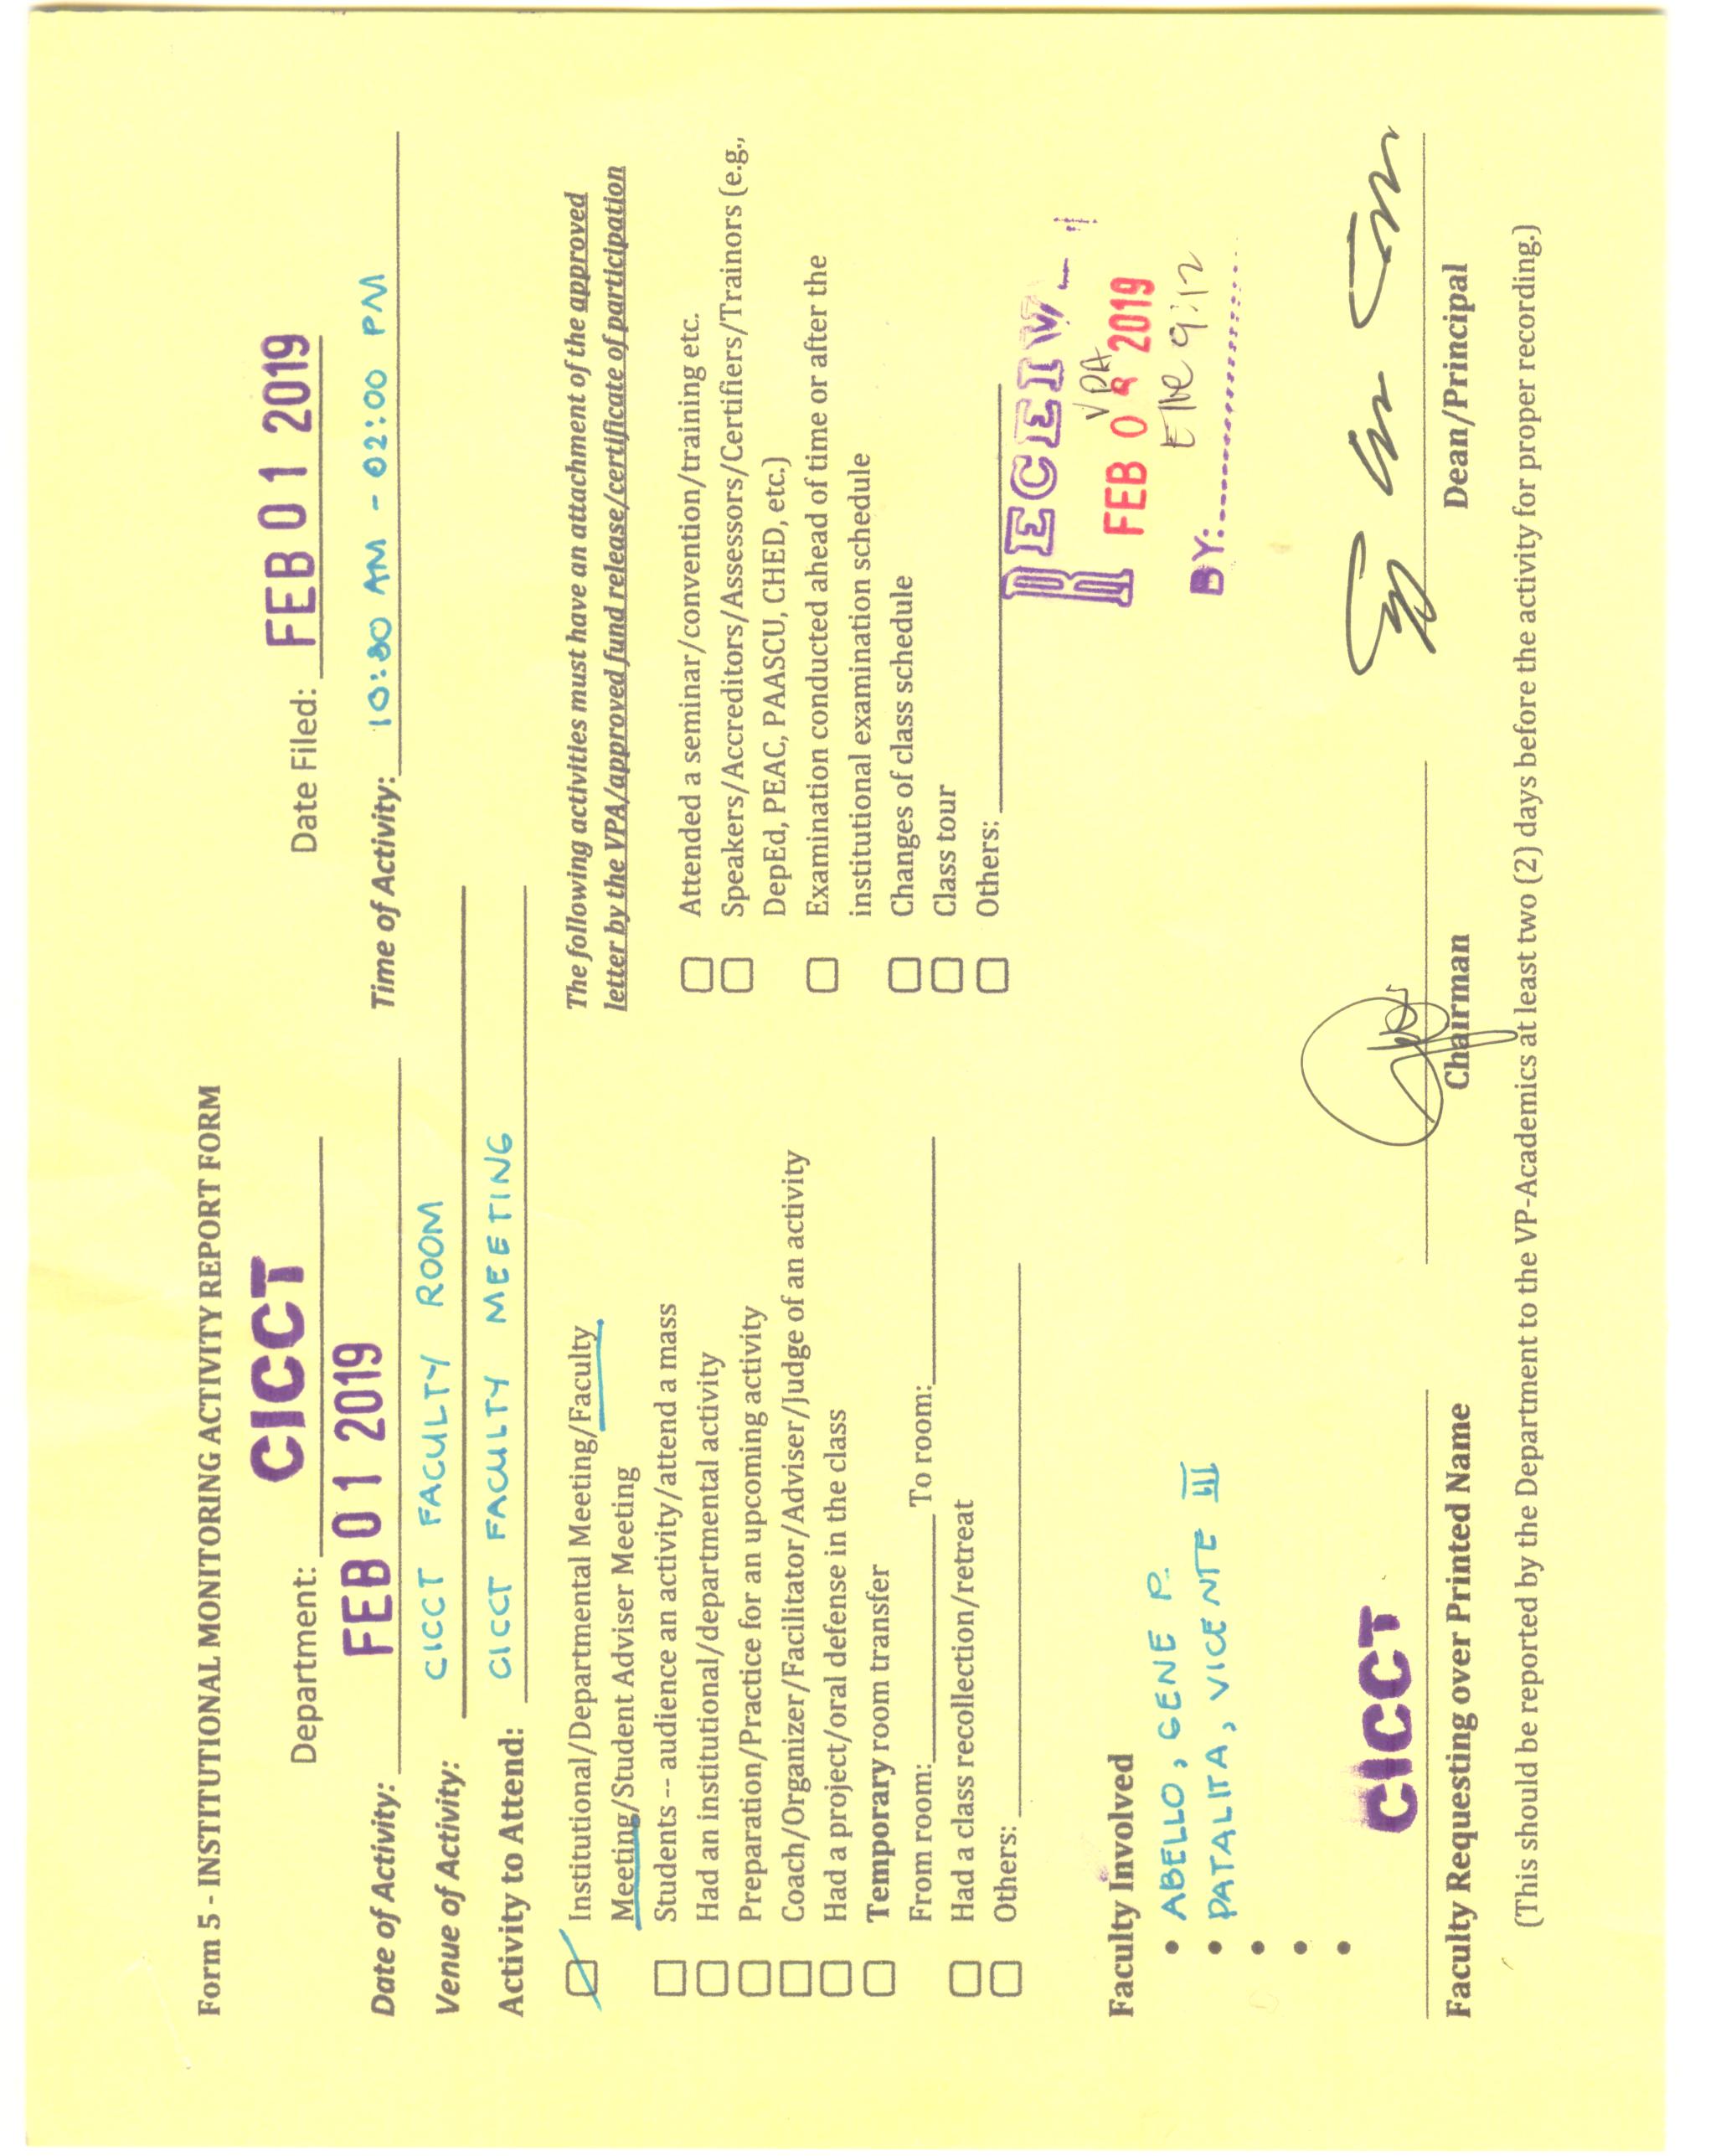 Form 5 - INSTITUTIONAL MONITORING ACTIVITY REPORT FORM
Department: CICCT Date Filed: FEB 01 2019
Date of Activity: FEB 01 2019 Time of Activity: 10:30 AM - 02:00 PM
Venue of Activity: CICCT FACULTY ROOM
Activity to Attend: CICCT FACULTY MEETING
Institutional/Departmental Meeting/Faculty
Meeting/Student Adviser Meeting
Students -- audience an activity/attend a mass
Had an institutional/departmental activity
Preparation/Practice for an upcoming activity
Coach/Organizer/Facilitator/Adviser/Judge of an activity
Had a project/oral defense in the class
Temporary room transfer
From room: To room:
Had a class recollection/retreat
Others:
The following activities must have an attachment of the approved
letter by the VPA/approved fund release/certificate of participation
Attended a seminar/convention/training etc.
Speakers/Accreditors/Assessors/Certifiers/Trainors (e.g.,
DepEd, PEAC, PAASCU, CHED, etc.)
Examination conducted ahead of time or after the
institutional examination schedule
Changes of class schedule
Class tour
Others:
VPA
FEB 0 2019
9:12
BY:
Faculty Involved
• ABELLO, GENE P.
• PATALITA, VICENTE III
•
•
•
CICCT
Faculty Requesting over Printed Name Chairman Dean/Principal
(This should be reported by the Department to the VP-Academics at least two (2) days before the activity for proper recording.)